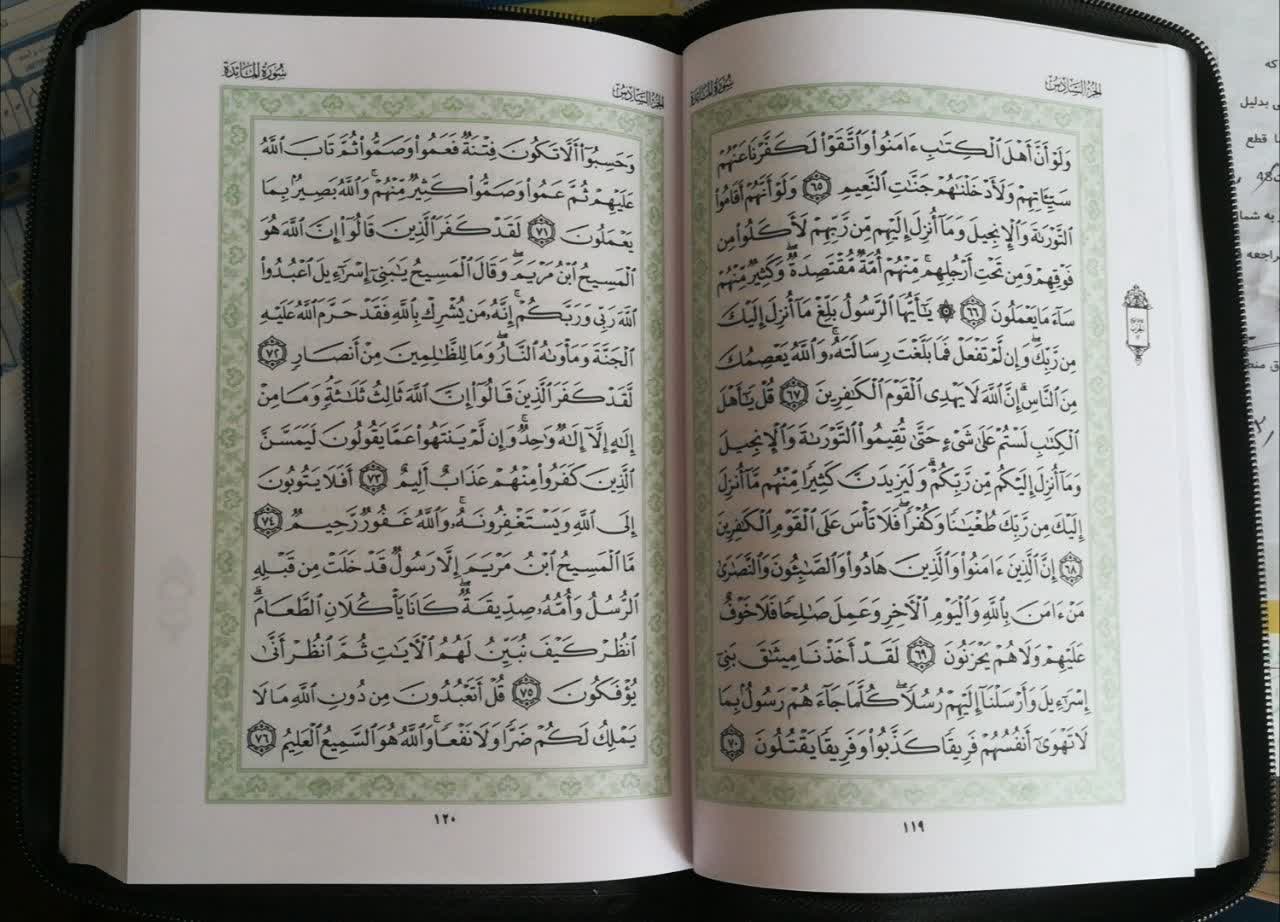 الجزء السادس
سورة المائدة
وَلَوْ أَنَّ أَهْلَ ٱلْكِتَٰبِ ءَامَنُوا۟ وَٱتَّقَوْا۟ لَكَفَّرْنَا عَنْهُمْ
سَيِّـَٔاتِهِمْ وَلَأَدْخَلْنَٰهُمْ جَنَّٰتِ ٱلنَّعِيمِ ٦٥ وَلَوْ أَنَّهُمْ أَقَامُوا۟
ٱلتَّوْرَىٰةَ وَٱلْإِنجِيلَ وَمَآ أُنزِلَ إِلَيْهِم مِّن رَّبِّهِمْ لَأَكَلُوا۟ مِن
فَوْقِهِمْ وَمِن تَحْتِ أَرْجُلِهِم ۚ مِّنْهُمْ أُمَّةٌ مُّقْتَصِدَةٌ ۖ وَكَثِيرٌ مِّنْهُمْ
سَآءَ مَا يَعْمَلُونَ ٦٦ ۞ يَٰٓأَيُّهَا ٱلرَّسُولُ بَلِّغْ مَآ أُنزِلَ إِلَيْكَ
مِن رَّبِّكَ ۖ وَإِن لَّمْ تَفْعَلْ فَمَا بَلَّغْتَ رِسَالَتَهُۥ ۚ وَٱللَّهُ يَعْصِمُكَ
مِنَ ٱلنَّاسِ ۗ إِنَّ ٱللَّهَ لَا يَهْدِى ٱلْقَوْمَ ٱلْكَٰفِرِينَ ٦٧ قُلْ يَٰٓأَهْلَ
ٱلْكِتَٰبِ لَسْتُمْ عَلَىٰ شَىْءٍ حَتَّىٰ تُقِيمُوا۟ ٱلتَّوْرَىٰةَ وَٱلْإِنجِيلَ
وَمَآ أُنزِلَ إِلَيْكُم مِّن رَّبِّكُمْ ۗ وَلَيَزِيدَنَّ كَثِيرًا مِّنْهُم مَّآ أُنزِلَ
إِلَيْكَ مِن رَّبِّكَ طُغْيَٰنًا وَكُفْرًا ۖ فَلَا تَأْسَ عَلَى ٱلْقَوْمِ ٱلْكَٰفِرِينَ
٦٨ إِنَّ ٱلَّذِينَ ءَامَنُوا۟ وَٱلَّذِينَ هَادُوا۟ وَٱلصَّٰبِـُٔونَ وَٱلنَّصَٰرَىٰ
مَنْ ءَامَنَ بِٱللَّهِ وَٱلْيَوْمِ ٱلْءَاخِرِ وَعَمِلَ صَٰلِحًا فَلَا خَوْفٌ
عَلَيْهِمْ وَلَا هُمْ يَحْزَنُونَ ٦٩ لَقَدْ أَخَذْنَا مِيثَٰقَ بَنِىٓ
إِسْرَٰٓءِيلَ وَأَرْسَلْنَآ إِلَيْهِمْ رُسُلًا ۖ كُلَّمَا جَآءَهُمْ رَسُولٌۢ بِمَا
لَا تَهْوَىٰٓ أَنفُسُهُمْ فَرِيقًا كَذَّبُوا۟ وَفَرِيقًا يَقْتُلُونَ ٧٠
١١٩
الجزء السادس
سورة المائدة
وَحَسِبُوٓا۟ أَلَّا تَكُونَ فِتْنَةٌ فَعَمُوا۟ وَصَمُّوا۟ ثُمَّ تَابَ ٱللَّهُ
عَلَيْهِمْ ثُمَّ عَمُوا۟ وَصَمُّوا۟ كَثِيرٌ مِّنْهُمْ ۚ وَٱللَّهُ بَصِيرٌۢ بِمَا
يَعْمَلُونَ ٧١ لَقَدْ كَفَرَ ٱلَّذِينَ قَالُوٓا۟ إِنَّ ٱللَّهَ هُوَ
ٱلْمَسِيحُ ٱبْنُ مَرْيَمَ ۖ وَقَالَ ٱلْمَسِيحُ يَٰبَنِىٓ إِسْرَٰٓءِيلَ ٱعْبُدُوا۟
ٱللَّهَ رَبِّى وَرَبَّكُمْ ۖ إِنَّهُۥ مَن يُشْرِكْ بِٱللَّهِ فَقَدْ حَرَّمَ ٱللَّهُ عَلَيْهِ
ٱلْجَنَّةَ وَمَأْوَىٰهُ ٱلنَّارُ ۖ وَمَا لِلظَّٰلِمِينَ مِنْ أَنصَارٍ ٧٢
لَّقَدْ كَفَرَ ٱلَّذِينَ قَالُوٓا۟ إِنَّ ٱللَّهَ ثَالِثُ ثَلَٰثَةٍ ۘ وَمَا مِنْ
إِلَٰهٍ إِلَّآ إِلَٰهٌ وَٰحِدٌ ۚ وَإِن لَّمْ يَنتَهُوا۟ عَمَّا يَقُولُونَ لَيَمَسَّنَّ
ٱلَّذِينَ كَفَرُوا۟ مِنْهُمْ عَذَابٌ أَلِيمٌ ٧٣ أَفَلَا يَتُوبُونَ
إِلَى ٱللَّهِ وَيَسْتَغْفِرُونَهُۥ ۚ وَٱللَّهُ غَفُورٌ رَّحِيمٌ ٧٤
مَّا ٱلْمَسِيحُ ٱبْنُ مَرْيَمَ إِلَّا رَسُولٌ قَدْ خَلَتْ مِن قَبْلِهِ
ٱلرُّسُلُ وَأُمُّهُۥ صِدِّيقَةٌ ۖ كَانَا يَأْكُلَانِ ٱلطَّعَامَ ۗ
ٱنظُرْ كَيْفَ نُبَيِّنُ لَهُمُ ٱلْءَايَٰتِ ثُمَّ ٱنظُرْ أَنَّىٰ
يُؤْفَكُونَ ٧٥ قُلْ أَتَعْبُدُونَ مِن دُونِ ٱللَّهِ مَا لَا
يَمْلِكُ لَكُمْ ضَرًّا وَلَا نَفْعًا ۚ وَٱللَّهُ هُوَ ٱلسَّمِيعُ ٱلْعَلِيمُ ٧٦
١٢٠
که
بدلیل
قطع
48
به شما